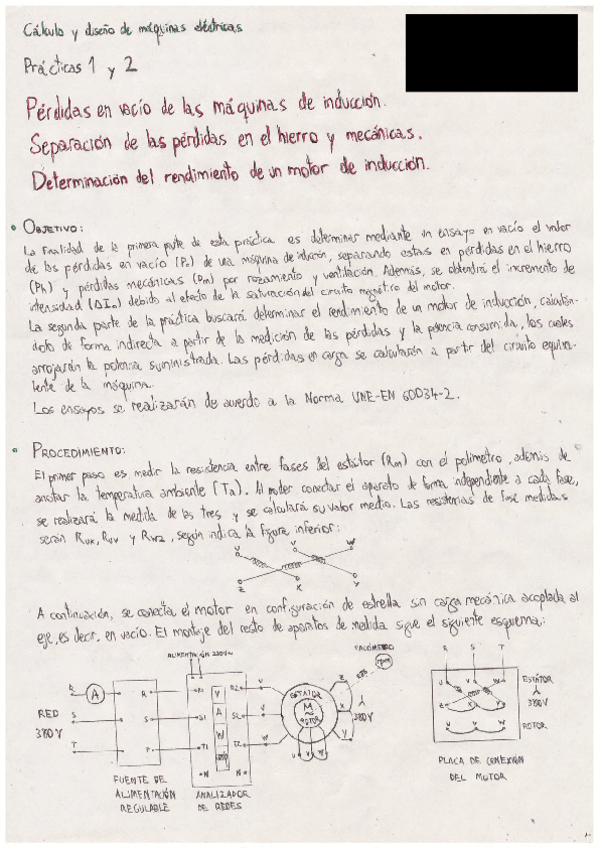 Cálculo y diseño de máquinas eléctricas
Prácticas 1 y 2
Pérdidas en vacío de las máquinas de inducción.
Separación de las pérdidas en el hierro y mecánicas.
Determinación del rendimiento de un motor de inducción.
• OBJETIVO:
La finalidad de la primera parte de esta práctica es determinar mediante un ensayo en vacío el valor
de las pérdidas en vacío (Po) de una máquina de inducción, separando estas en pérdidas en el hierro
(Ph) y pérdidas mecánicas (Pm) por rozamiento y ventilación. Además, se obtendrá el incremento de
intensidad (ΔIo) debido al efecto de la saturación del circuito magnético del motor.
La segunda parte de la práctica buscará determinar el rendimiento de un motor de inducción, calculán-
dolo de forma indirecta a partir de la medición de las pérdidas y la potencia consumida, los cuales
arrojarán la potencia suministrada. Las pérdidas en carga se calcularán a partir del circuito equiva-
lente de la máquina.
Los ensayos se realizarán de acuerdo a la Norma UNE-EN 60034-2.
• PROCEDIMIENTO:
El primer paso es medir la resistencia entre fases del estátor (Rm) con el polímetro, además de
anotar la temperatura ambiente (Ta). Al poder conectar el aparato de forma independiente a cada fase,
se realizará la medida de las tres y se calculará su valor medio. Las resistencias de fase medidas
serán Rux, Rvy y Rwz, según indica la figura inferior:
U V W
Z X Y
A continuación, se conecta el motor en configuración de estrella sin carga mecánica acoplada al
eje, es decir, en vacío. El montaje del resto de aparatos de medida sigue el siguiente esquema:
ALIMENTACIÓN 230V~
TACÓMETRO
R S T
RED
380V
R S T
A
R S T
FUENTE DE
ALIMENTACIÓN
REGULABLE
R1 S1 T1 N
V A W
R2 S2 T2 N
ANALIZADOR
DE REDES
U V W
ESTÁTOR
M
~
ROTOR
U V W
Z X Y
380V
U V W
Z X Y
U V W
ESTÁTOR
380V
ROTOR
PLACA DE CONEXIÓN
DEL MOTOR